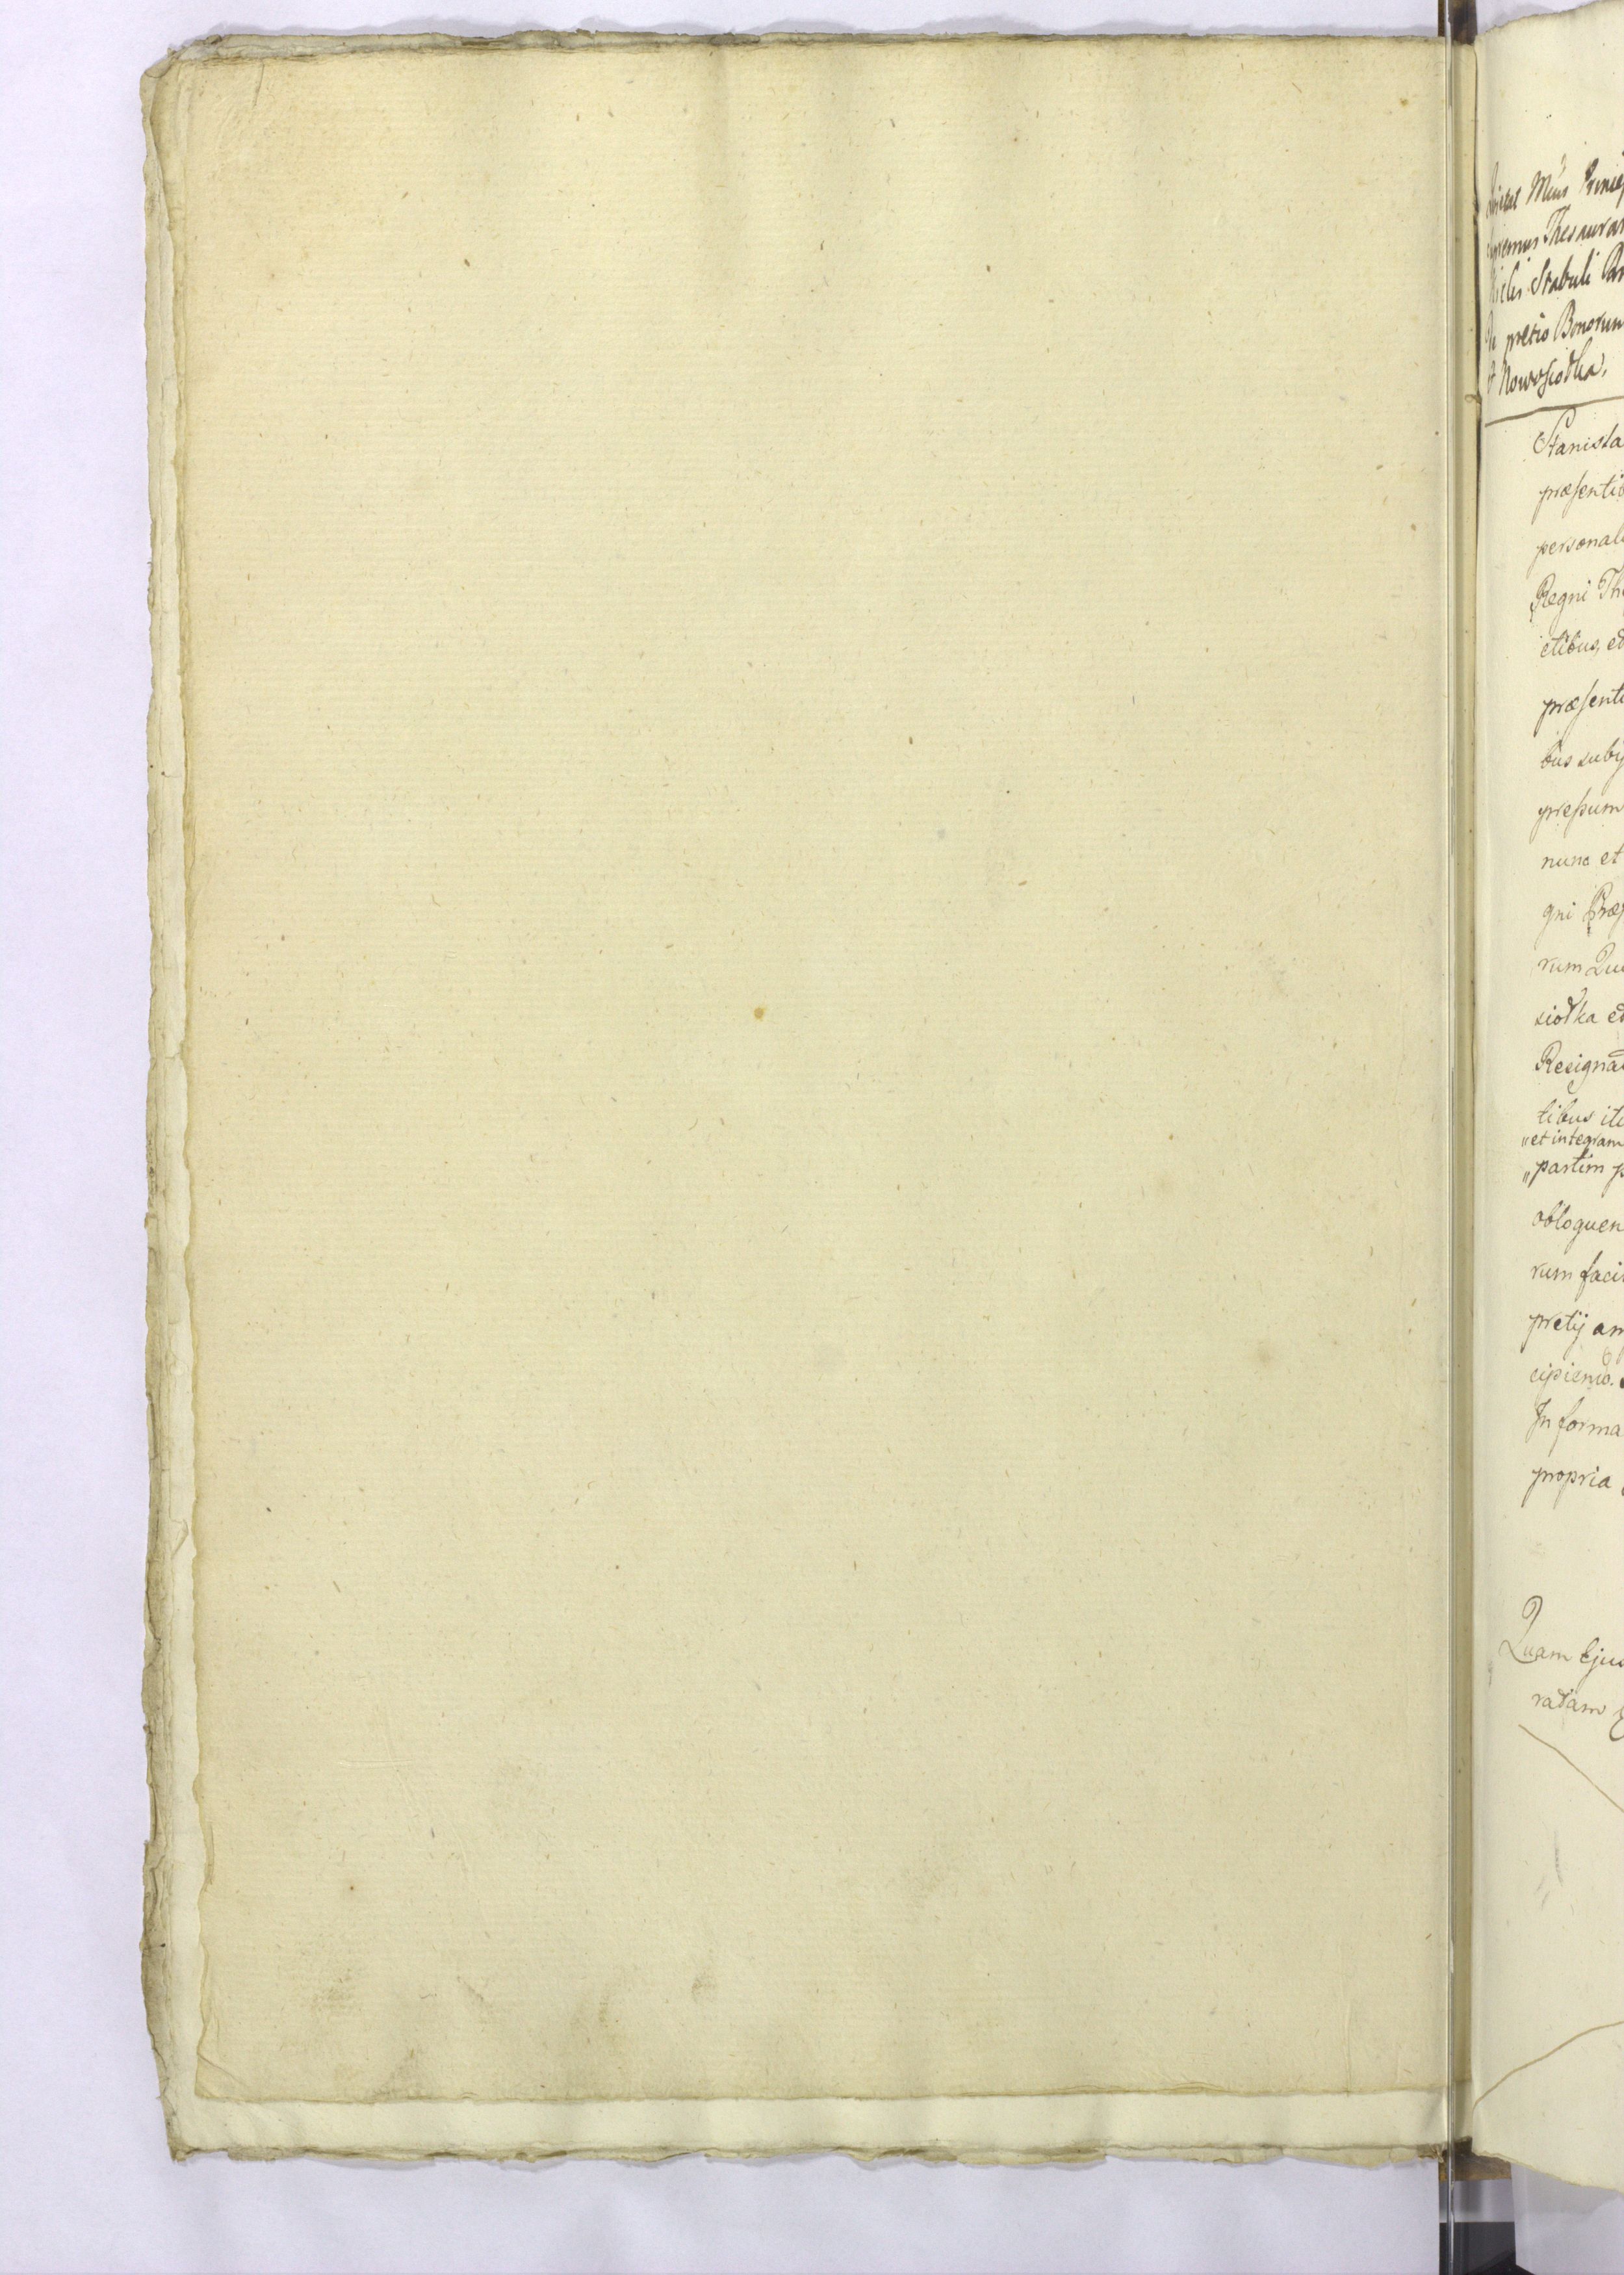 Mǔus
Thesaurar
Stabuli
pretio Bonorum
Nowosiodka,
Stanisla
præsenti
personal
Regni Th
ctibus, et
præsent
bus suby
pressum
nunc et
gni Præ
rum Qu
siodka et
Resigna
tibus it
„et integram
„partim p
obloquen
rum faci
pretij am
cipiendo.
In forma
propria
Quam Ejus
ratam